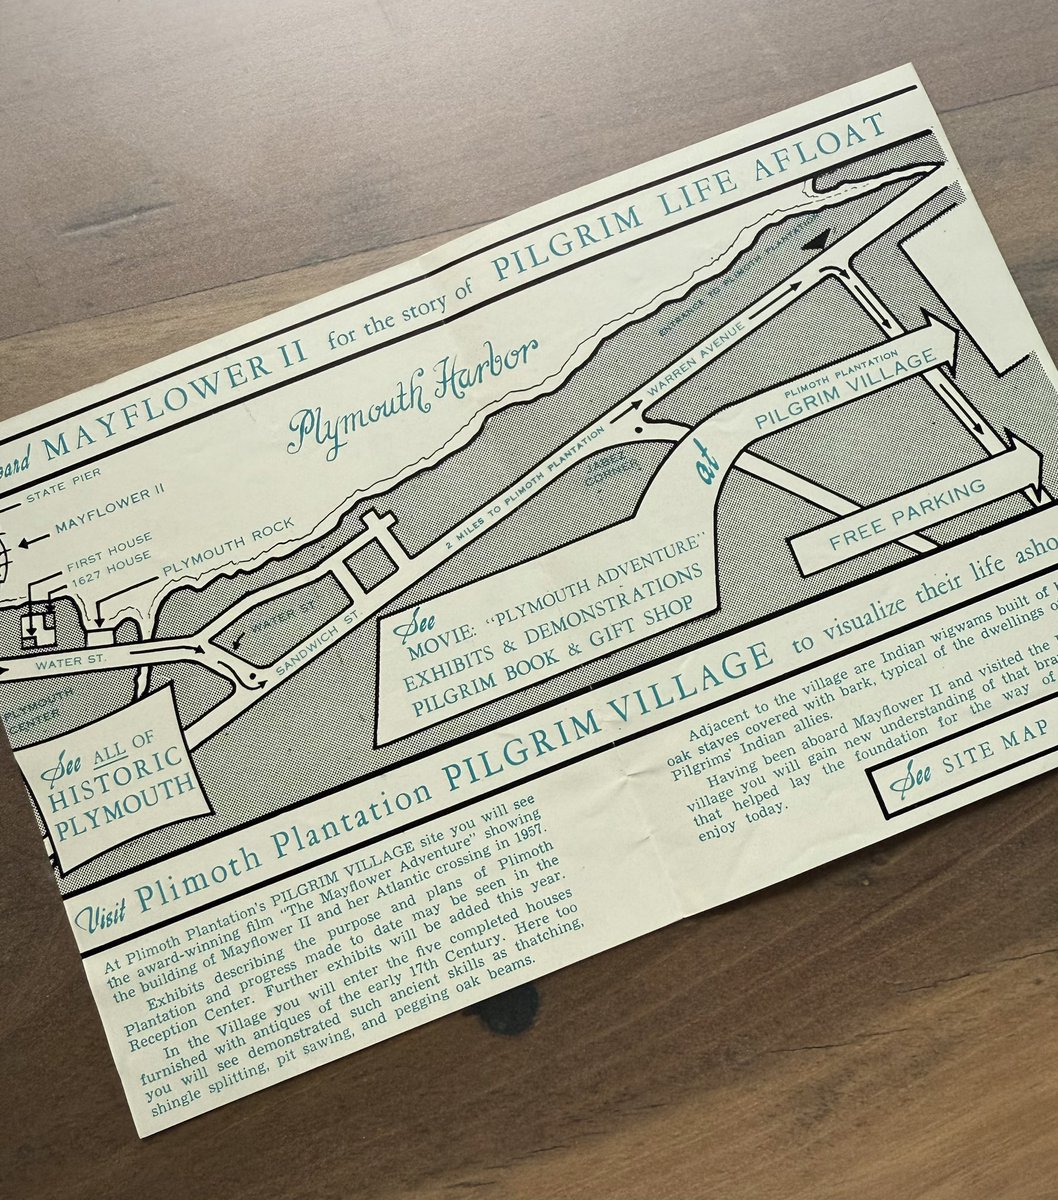 MAYFLOWER II for the story of PILGRIM LIFE AFLOAT
Plymouth Harbor
STATE PIER
MAYFLOWER II
FIRST HOUSE
1627 HOUSE
PLYMOUTH ROCK
WATER ST.
WATER ST.
SANDWICH ST.
PLYMOUTH
CENTER
2 MILES TO PLIMOTH PLANTATION
JABEZ
CORNER
WARREN AVENUE
ENTRANCE TO PLIMOTH PLANTATION
See
MOVIE: "PLYMOUTH ADVENTURE"
EXHIBITS & DEMONSTRATIONS
PILGRIM BOOK & GIFT SHOP
at
PLIMOTH PLANTATION
PILGRIM VILLAGE
FREE PARKING
See ALL OF
HISTORIC
PLYMOUTH
Visit Plimoth Plantation PILGRIM VILLAGE to visualize their life
At Plimoth Plantation's PILGRIM VILLAGE site you will see
the award-winning film "The Mayflower Adventure" showing
the building of Mayflower II and her Atlantic crossing in 1957.
Exhibits describing the purpose and plans of Plimoth
Plantation and progress made to date may be seen in the
Reception Center. Further exhibits will be added this year.
In the Village you will enter the five completed houses
furnished with antiques of the early 17th Century. Here too
you will see demonstrated such ancient skills as thatching,
shingle splitting, pit sawing, and pegging oak beams.
Adjacent to the village are Indian wigwams built of
oak staves covered with bark, typical of the dwellings of
Pilgrims' Indian allies.
Having been aboard Mayflower II and visited the
village you will gain new understanding of that
that helped lay the foundation for the way of
enjoy today.
See SITE MAP